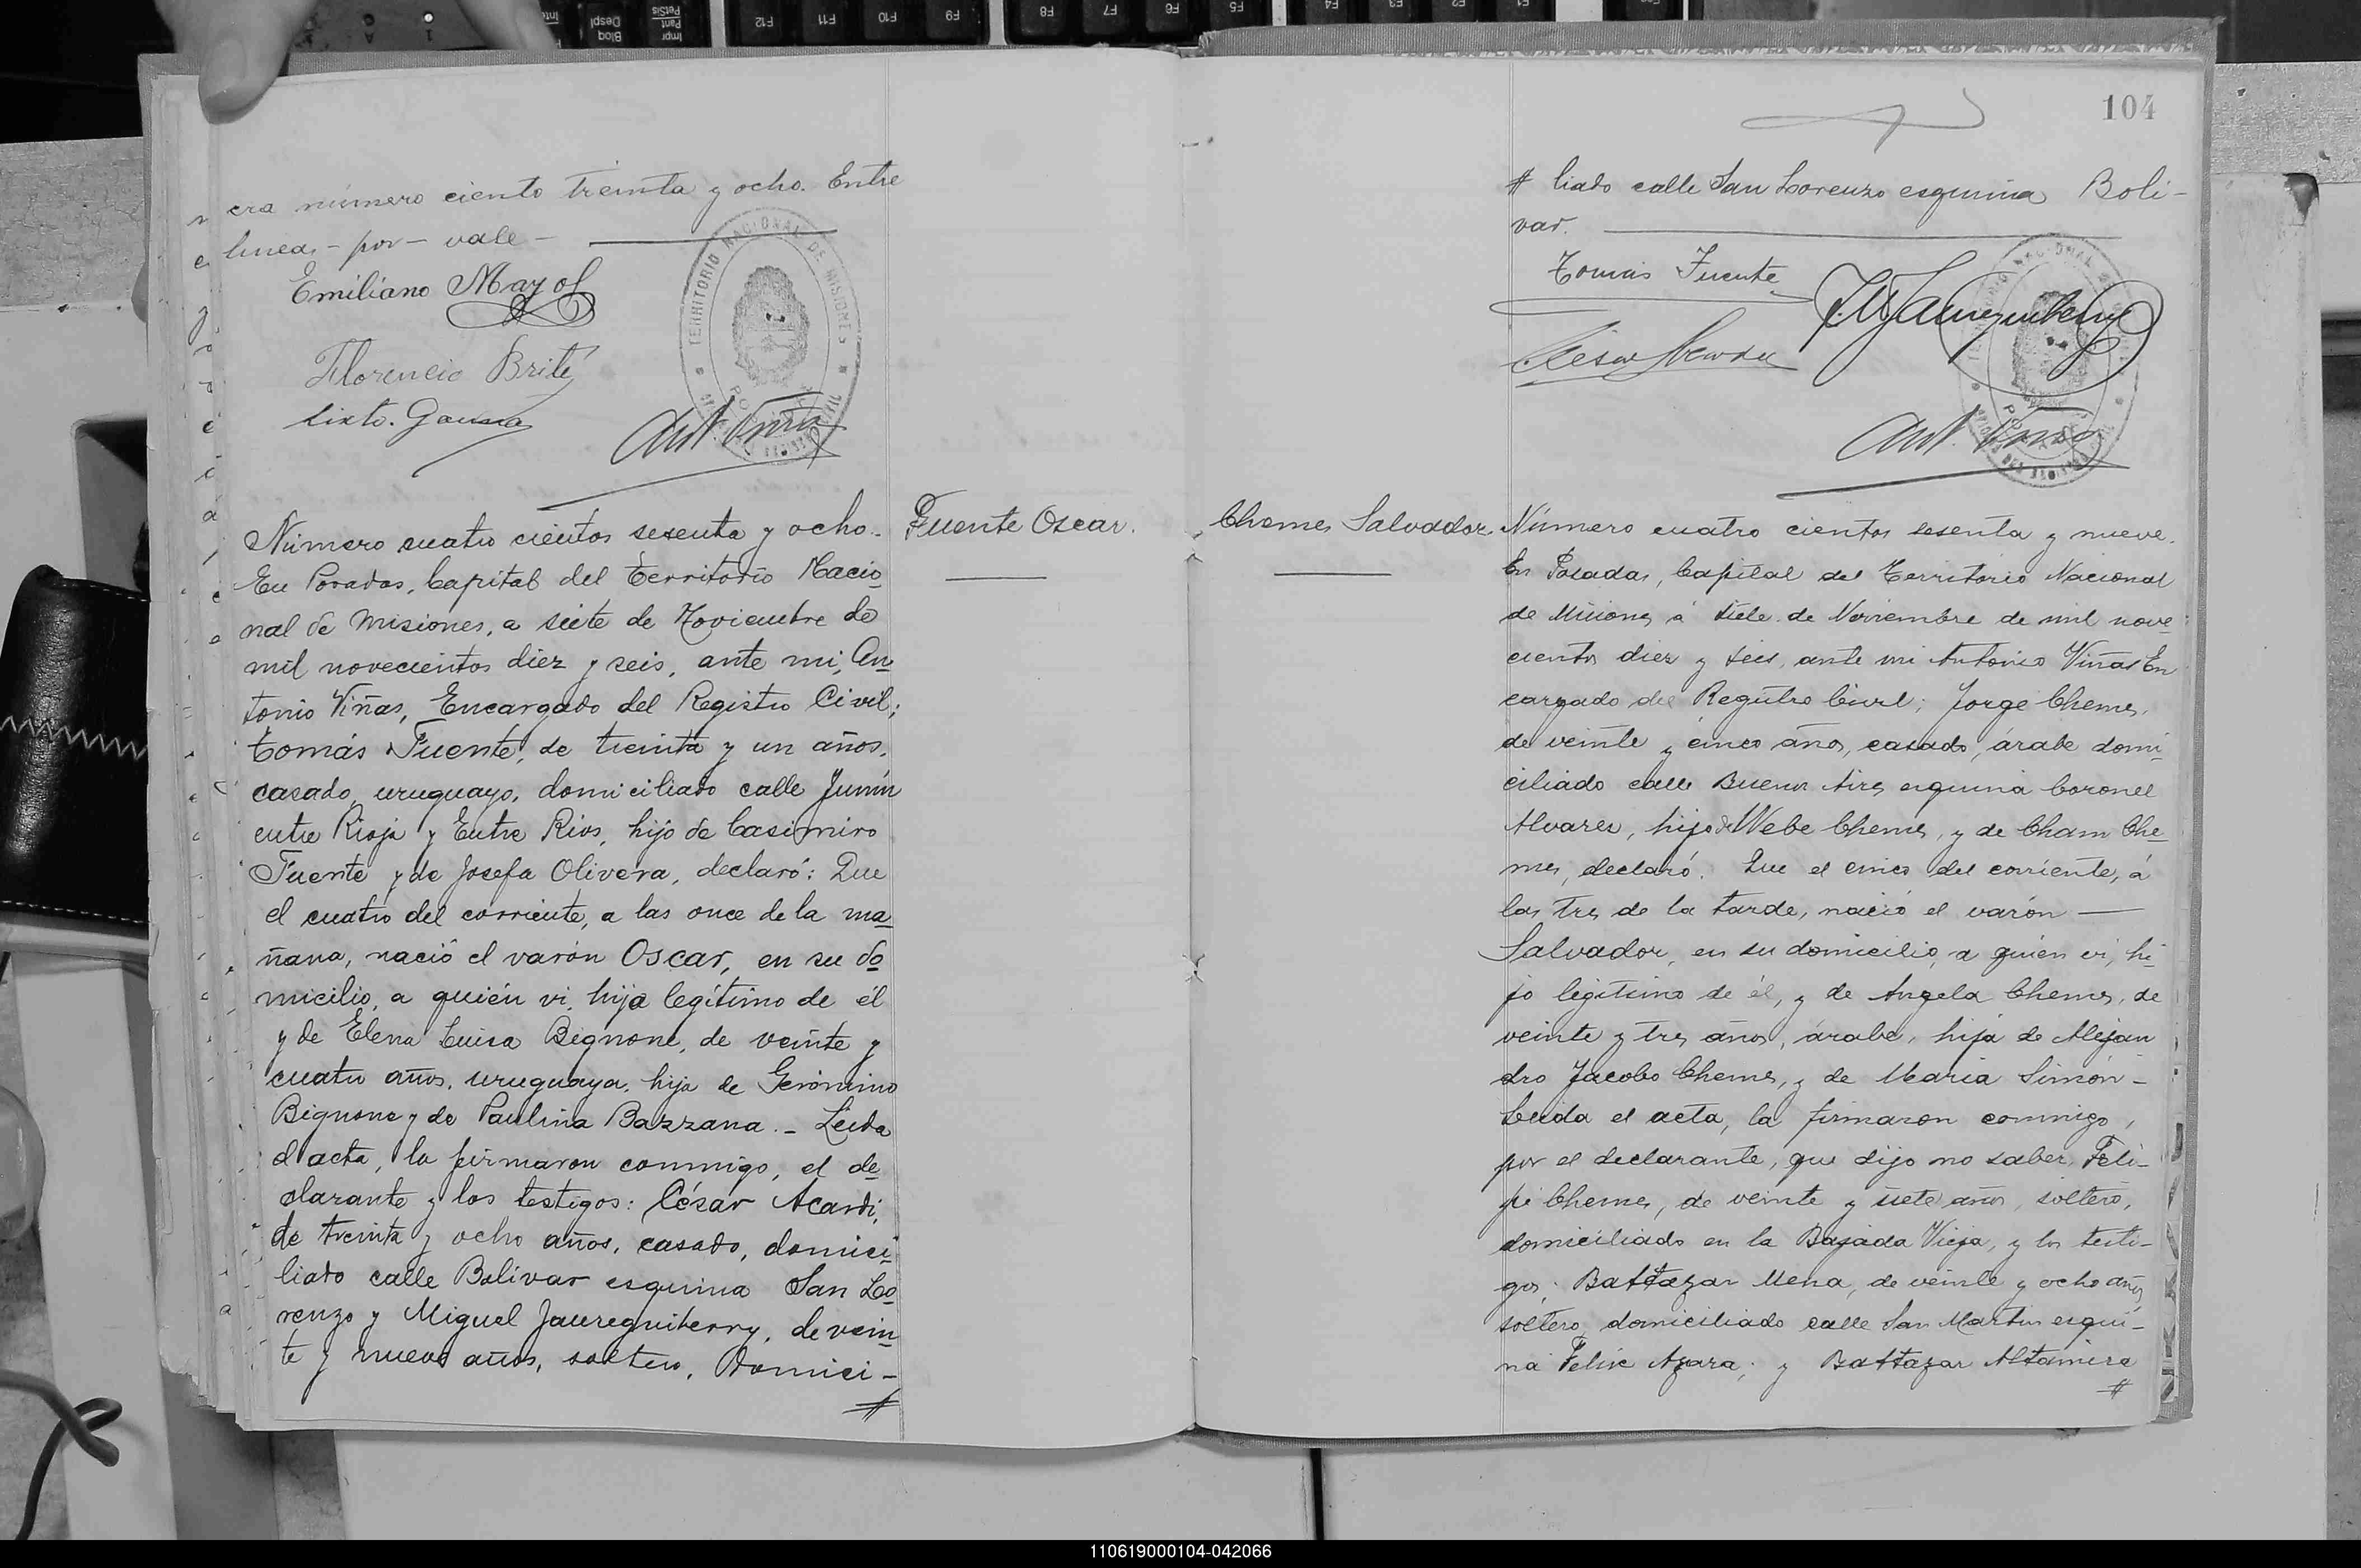 era número ciento treinta y ocho. Entre
lineas - por - vale -
Emiliano Mayol
Florencio Brite
Sixto. Gauna
Ant. Viñas
TERRITORIO NACIONAL DE MISIONES
Número cuatro cientos sesenta y ocho.-
En Posadas, Capital del Territorio Nacio
nal de Misiones, a siete de Noviembre de
mil novecientos diez y seis, ante mi, An
tonio Viñas, Encargado del Registro Civil;
Tomás Fuente, de treinta y un años,
casado, uruguayo, domiciliado calle Junin
entre Rioja y Entre Rios, hijo de Casimiro
Fuente y de Josefa Olivera, declaró: Que
el cuatro del corriente, a las once de la ma
ñana, nació el varón Oscar, en su do
micilio, a quién vi, hijo legítimo de él
y de Elena Luisa Bignone, de veinte y
cuatro años, uruguaya, hija de Gerónimo
Bignone y de Paulina Bazzana. - Leida
el acta, la firmaron conmigo, el de
clarante y los testigos: César Acardi,
de treinta y ocho años, casado, domici
liado calle Bolívar esquina San Lo
renzo y Miguel Jaureguiberry, de vein
te y nueve años, soltero, domici -
#
Fuente Oscar.
104
# liado calle San Lorenzo esquina Boli -
var.
Tomás Fuente
Ant. Viñas
Chemes Salvador
Número cuatro cientos sesenta y nueve.
En Posadas, Capital del Territorio Nacional
de Misiones á siete de Noviembre de mil nove
cientos diez y seis, ante mi Antonio Viñas En
cargado del Registro Civil; Jorge Chemes,
de veinte y cinco años, casado, árabe domi
ciliado calle Buenos Aires esquina Coronel
Alvares, hijo de Webe Chemes, y de Cham Che
mes, declaró: Que el cinco del corriente, á
las tres de la tarde, nació el varón
Salvador, en su domicilio, a quién vi, hi
jo legítimo de él, y de Angela Chemes, de
veinte y tres años, árabe, hija de Alejan
dro Jacobo Chemes, y de Maria Simón -
Leida el acta, la firmaron conmigo,
por el declarante, que dijo no saber, Feli-
pe Chemes, de veinte y siete años, soltero,
domiciliado en la Bajada Vieja, y los testi-
gos: Baltazar Mena, de veinte y ocho años
soltero, domiciliado calle San Martin esqui-
na Felix Azara; y Baltazar Altamira
#
110619000104-042066